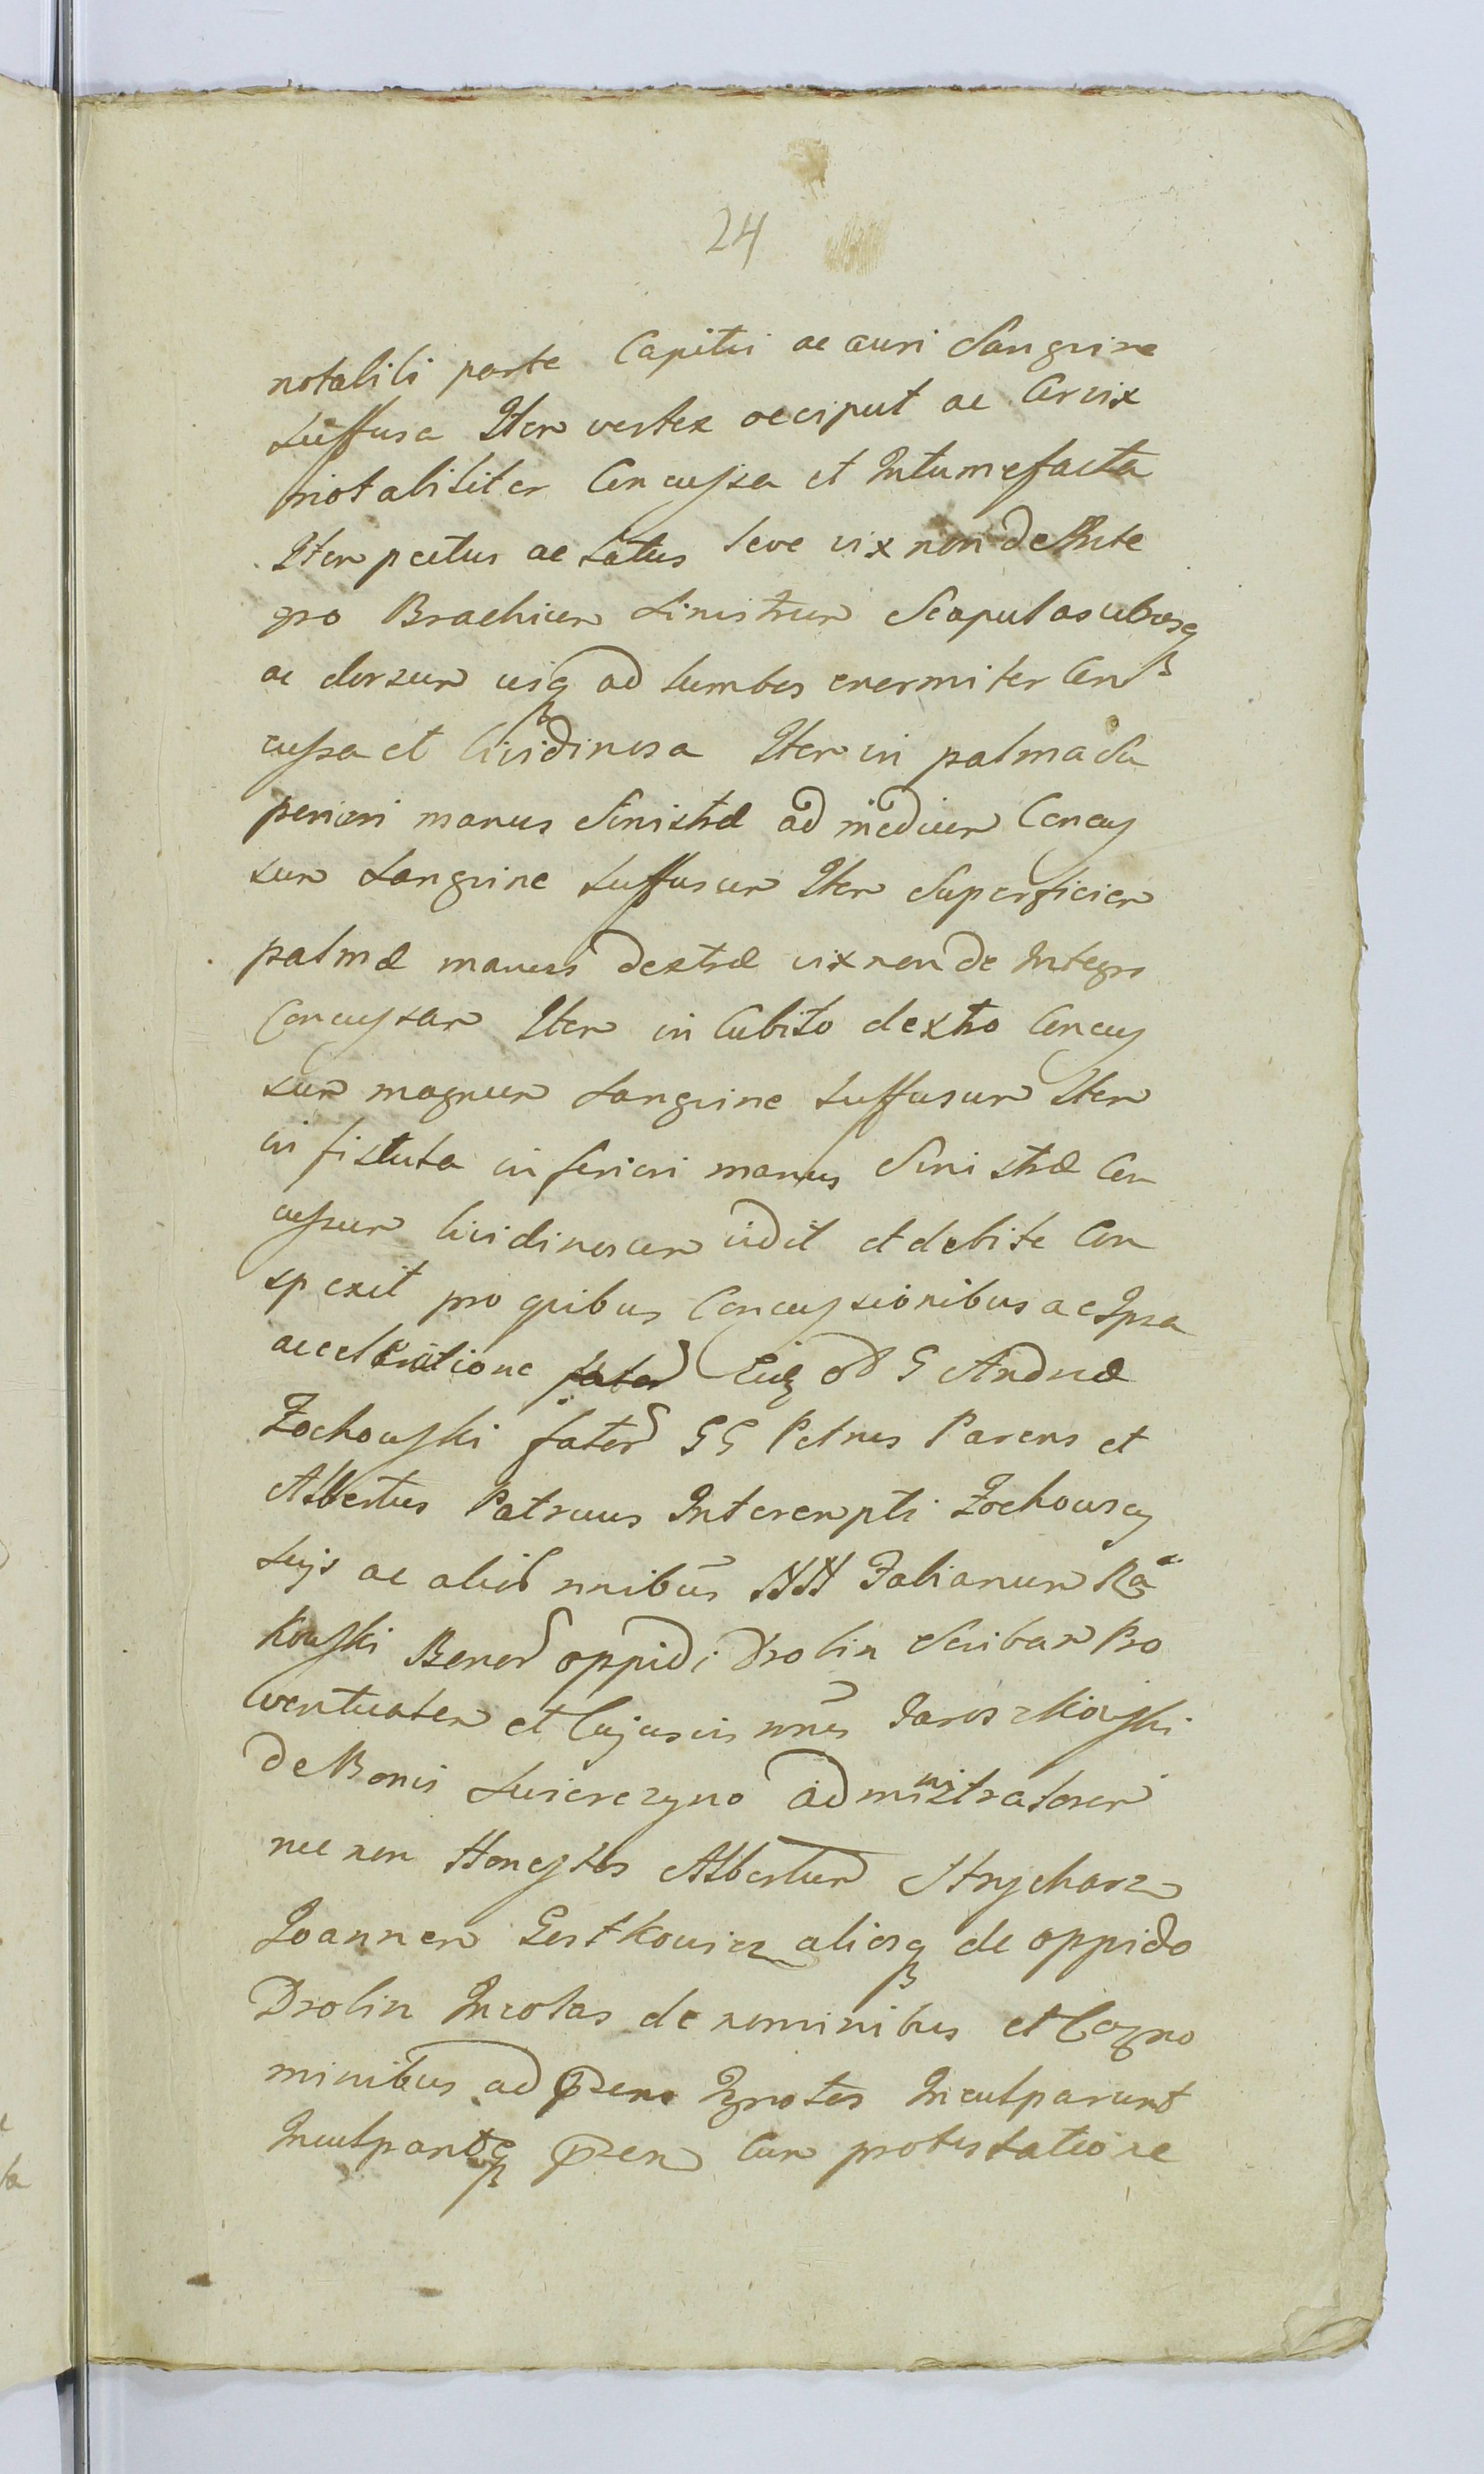 24
notabili parte Capitis ac auri Sanguine
suffusa Item vertex occiput ac Cervix
notabiliter Concussa et Intumefacta
Item pectus ac Latus leve vix non de Inte
gro Brachium sinistrum Scapulas utrasq
ac dorsum usq ad lumbos enormiter Con
cussa et lividinosa Item in palma Su
periori manus Sinistræ ad medium Concus
sum Sanguine suffusum Item Superficiem
palmæ manus dextræ vix non de Integro
Concussam Item in Cubito dextro Concus
sum magnum Sanguine suffusum Item
in fistula inferiori manus Sinistræ Con
cussum lividinosum vidit et debite Con
spexit pro quibus Concussionibus ac Ipsa
acceleratione Ejusd G Andreæ
Zochowski fator GG Petrus Parens et
Albertus Patruus Interempti Zochowscy
suis ac nnibus NN Fabianum Ra
kowski Bonor oppidi Drobin Scribam Pro
ventualem et Cujusvis nnis Jaroszkowski
de Bonis Swierczyno administratorem
nec non Honestos Albertum Strycharz
Joannem Gostkowicz aliosq de oppido
Drobin Incolas de nominibus et Cogno
minibus ad Ignotos Inculparunt
Inculpantq Cum protestatione